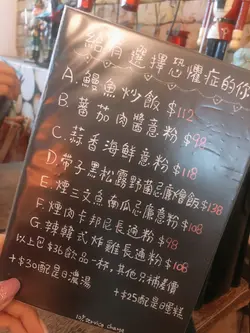 給有選擇恐懼症的你
A. 鰻魚炒飯 $112
B. 蕃茄肉醬意粉 $98
C. 蒜香海鮮意粉 $118
D. 帶子黑松露野菌忌廉燴飯 $138
E. 煙三文魚南瓜忌廉意粉 $108
F. 煙肉卡邦尼長通粉 $98
G. 辣韓式炸雞長通粉 $108
以上包$36飲品一杯,其他只補差價
+$30配是日濃湯
+$25配是日蛋糕
10% Service Charge